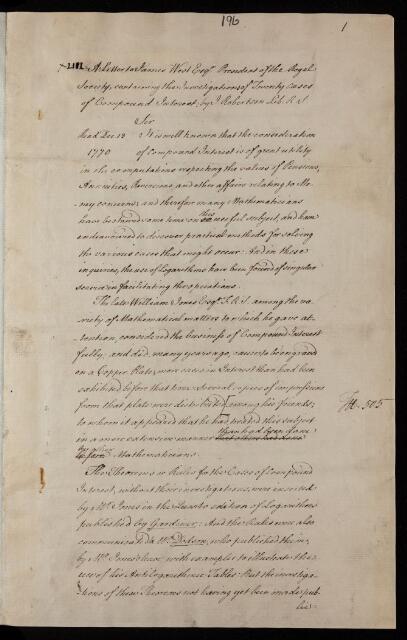 196
1
2181
A Letter to James West Esqr. President of the Royal
Society, containing the Investigations of Twenty cases
of Compound Interest; by J. Robertson Lib. R. S.
Sir
Read Dec. 13
1770
It is well known that the consideration
of Compound Interest is of great utility
in the computations respecting the values of Pensions,
Annuities, Reversions, and other affairs relating to Mo-
ney concerns; and therefore many Mathematicians
have bestowed some time on this useful subject, and have
endeavoured to discover practical methods for solving
the various cases that might occur: And in these
inquiries, the use of Logarithms have been found of singular
service in facilitating the operations.
The late William Jones Esqr. F. R. S. among the va-
riety of Mathematical matters to which he gave at-
tention, considered the business of Compound Interest
fully; and did, many years ago, cause to be engraved
on a Copper Plate, more cases in Interest than had been
exhibited before that time: Several copies of impressions
from that plate were distributed [among his friends;
to whom it appeared that he had treated this subject
in a more extensive manner than had been done
by other Mathematicians.
H. 505
The Theorems or Rules for the Cases of Compound
Interest, without their investigations, were inserted
by Mr. Jones in the Quarto edition of Logarithms
published by Gardiner: And the Rules were also
communicated to Mr. Dodson, who published them,
by Mr. Jones's leave, with examples to illustrate the
use of his Antilogarithmic Tables: But the investiga-
tions of these Theorems not having yet been made pub-
lic